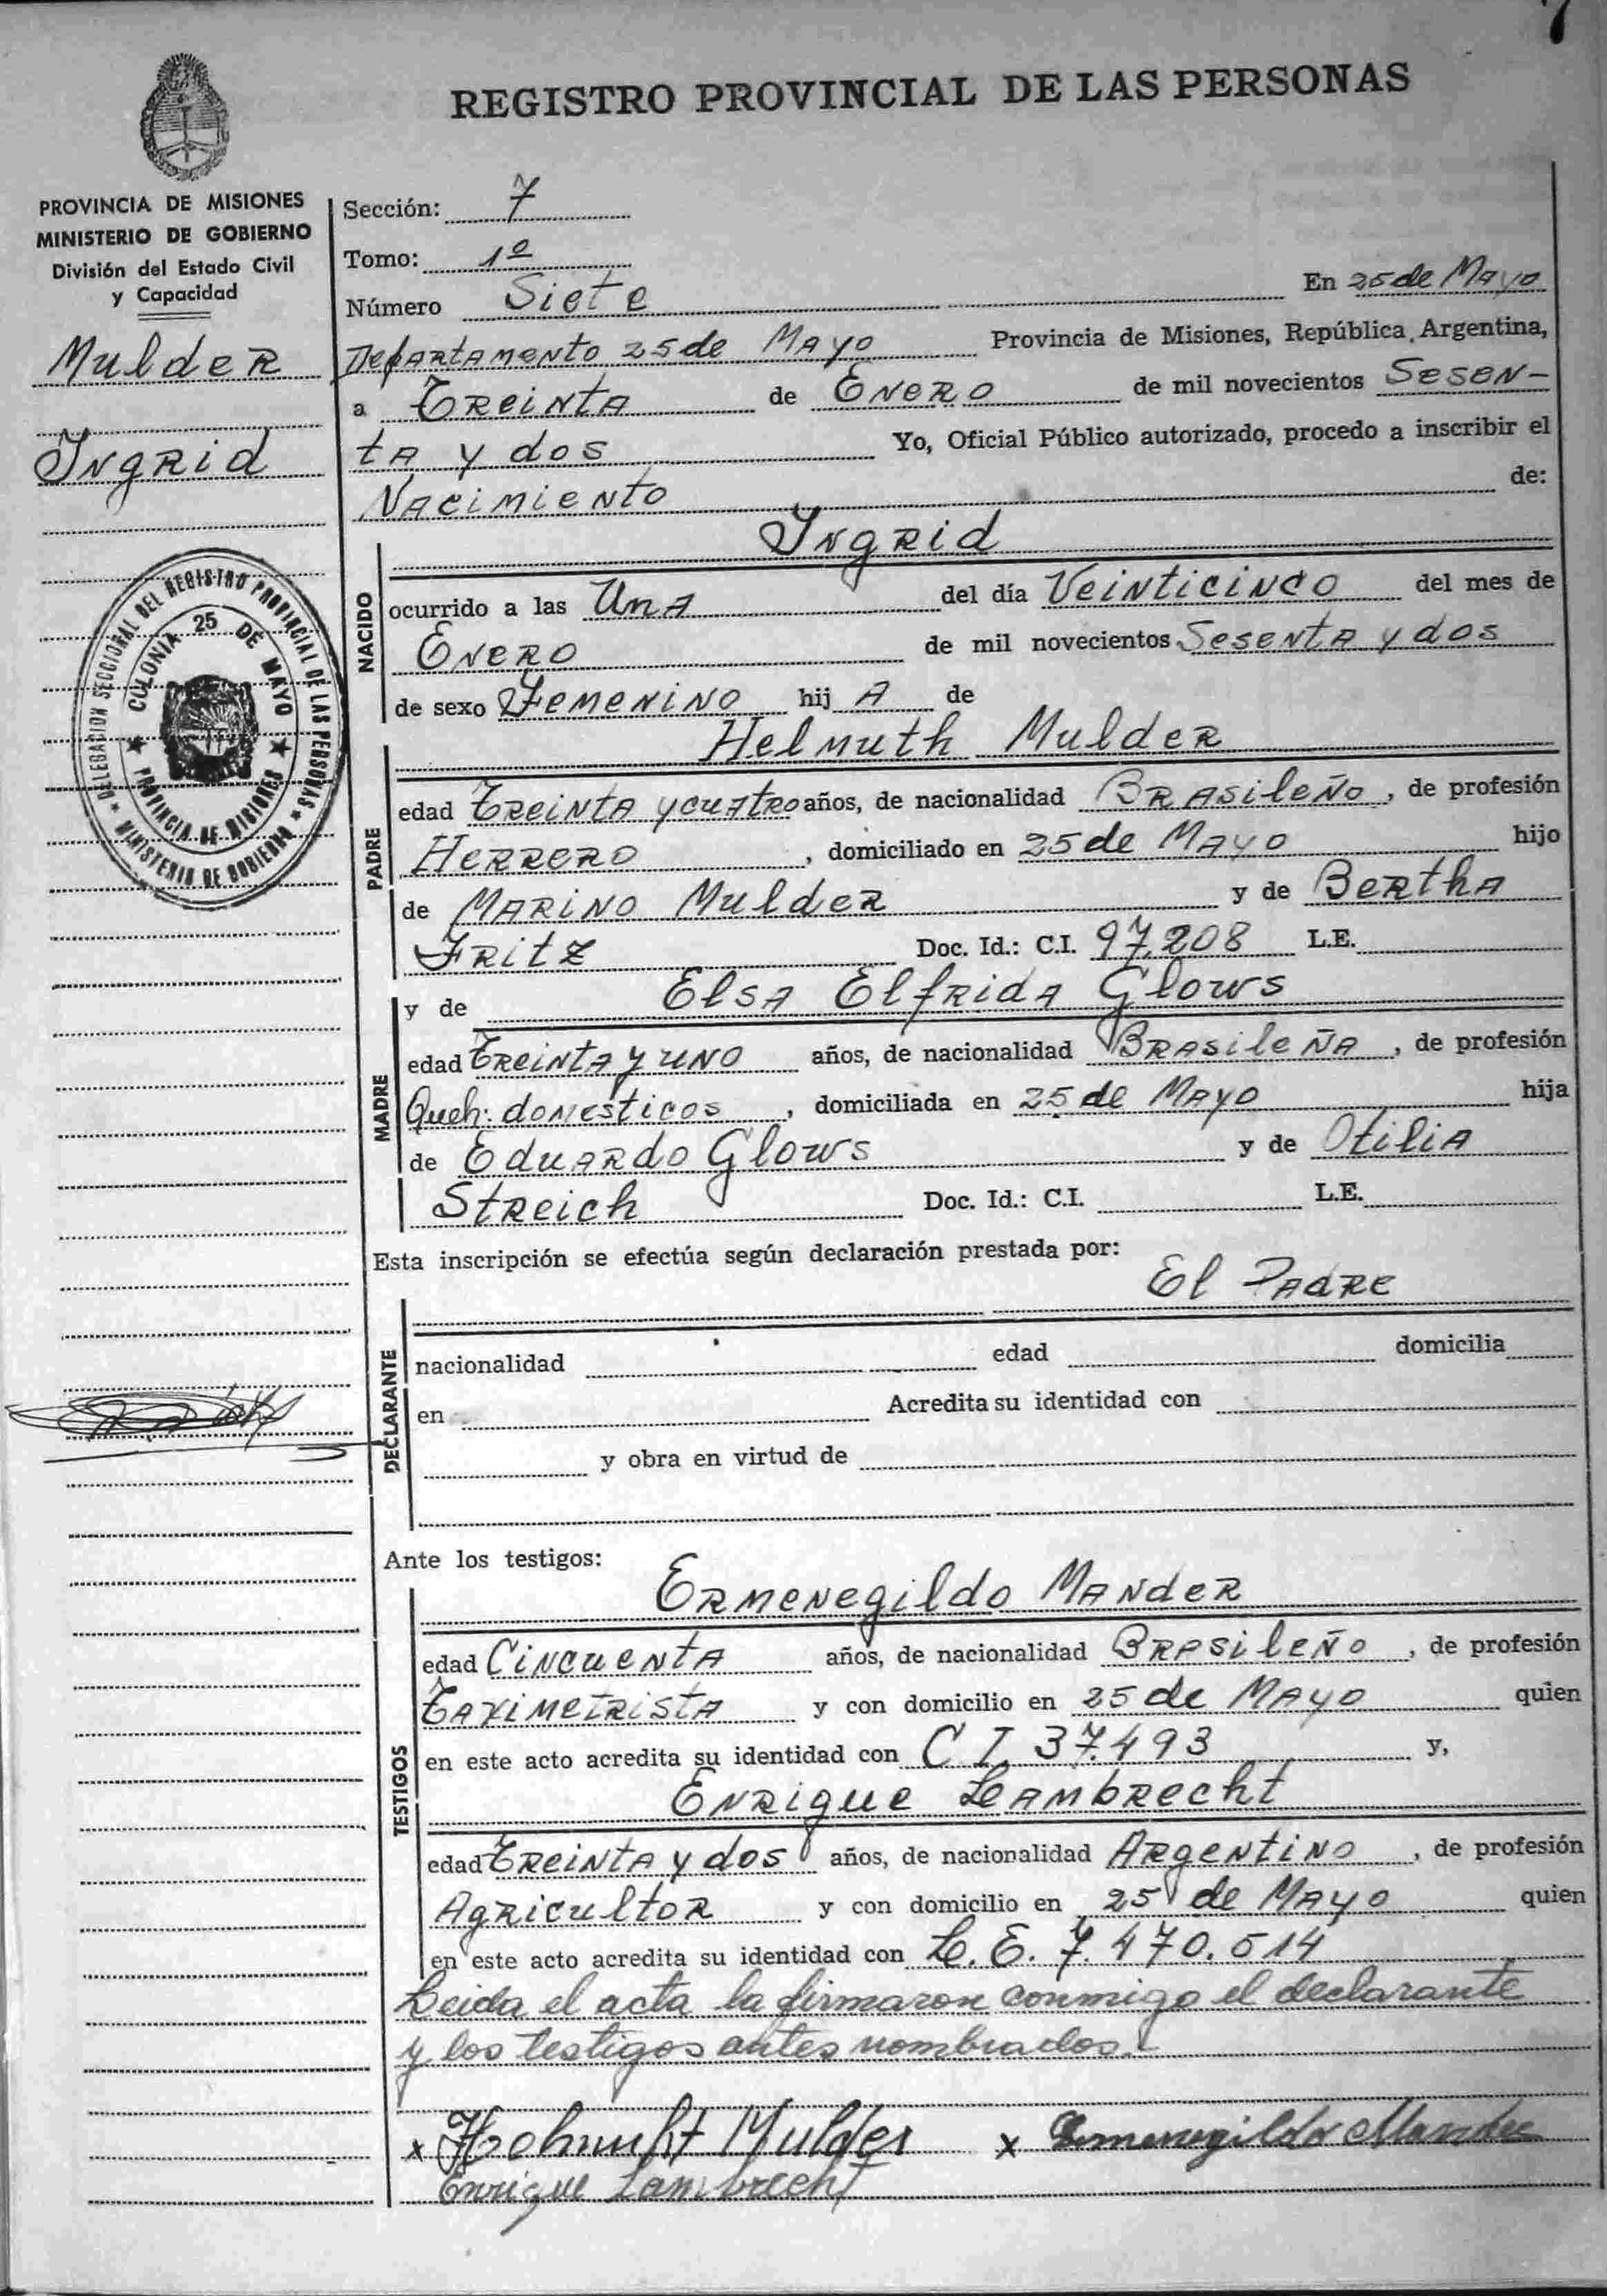 7
REGISTRO PROVINCIAL DE LAS PERSONAS
PROVINCIA DE MISIONES
MINISTERIO DE GOBIERNO
División del Estado Civil
y Capacidad
Mulder
Ingrid
DELEGACION SECCIONAL DEL REGISTRO PROVINCIAL DE LAS PERSONAS
COLONIA 25 DE MAYO
PROVINCIA DE MISIONES
MINISTERIO DE GOBIERNO
Sección: 7
Tomo: 1º
Número Siete En 25 de Mayo
Departamento 25 de Mayo Provincia de Misiones, República Argentina,
a Treinta de Enero de mil novecientos Sesen-
ta y dos Yo, Oficial Público autorizado, procedo a inscribir el
Nacimiento de:
Ingrid
NACIDO
ocurrido a las Una del día Veinticinco del mes de
Enero de mil novecientos Sesenta y dos
de sexo Femenino hij A de
Helmuth Mulder
PADRE
edad Treinta y cuatro años, de nacionalidad Brasileño, de profesión
Herrero, domiciliado en 25 de Mayo hijo
de Marino Mulder y de Bertha
Fritz Doc. Id.: C.I. 97.208 L.E.
y de Elsa Elfrida Glows
MADRE
edad Treinta y uno años, de nacionalidad Brasileña, de profesión
Queh. domesticos, domiciliada en 25 de Mayo hija
de Eduardo Glows y de Otilia
Streich Doc. Id.: C.I. L.E.
Esta inscripción se efectúa según declaración prestada por:
El Padre
DECLARANTE
nacionalidad edad domicilia
en Acredita su identidad con
y obra en virtud de
Ante los testigos:
Ermenegildo Mander
TESTIGOS
edad Cincuenta años, de nacionalidad Brasileño, de profesión
Taximetrista y con domicilio en 25 de Mayo quien
en este acto acredita su identidad con C I. 37.493 y,
Enrique Lambrecht
edad Treinta y dos años, de nacionalidad Argentino, de profesión
Agricultor y con domicilio en 25 de Mayo quien
en este acto acredita su identidad con L. E. 7.470.514
Leida el acta la firmaron conmigo el declarante
y los testigos antes nombrados.
x Helmuht Mulder x Ermenegildo Mander
Enrique Lambrecht